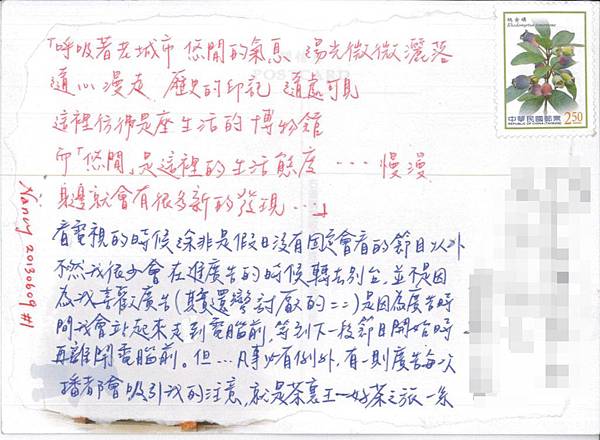 「呼吸著老城市 悠閒的氣息 陽光微微灑落
隨心漫走 歷史的印記 隨處可見
這裡彷彿是座生活的博物館
而「悠閒」是這裡的生活態度 ... 慢漫
身邊就會有很多新的發現...」
看電視的時候除非是假日沒有固定會看的節目以外
不然我很少會在進廣告的時候轉去別台,並不是因
為我喜歡廣告(其實還蠻討厭的==)是因為廣告時
間我會站起來走到電腦前,等到下一段節目開始時
再離開電腦前。但...凡事必有例外,有一則廣告每次
播都會吸引我的注意,就是茶裏王—好茶之旅一系
Nancy 20130609 #1
桃金孃
Rhodomyrtus tomentosa
中華民國郵票
REPUBLIC OF CHINA (TAIWAN)
2.50